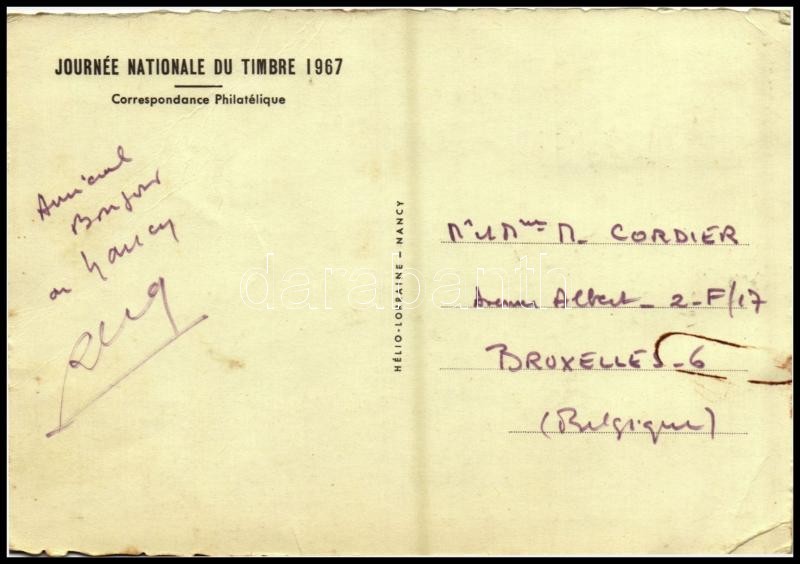 JOURNÉE NATIONALE DU TIMBRE 1967
Correspondance Philatélique
Amical
Bonjour
Nancy
HÉLIO-LORRAINE - NANCY
Mr et Mme M. CORDIER
Avenue Albert - 2-F/17
BRUXELLES-6
(Belgique)
darabanth